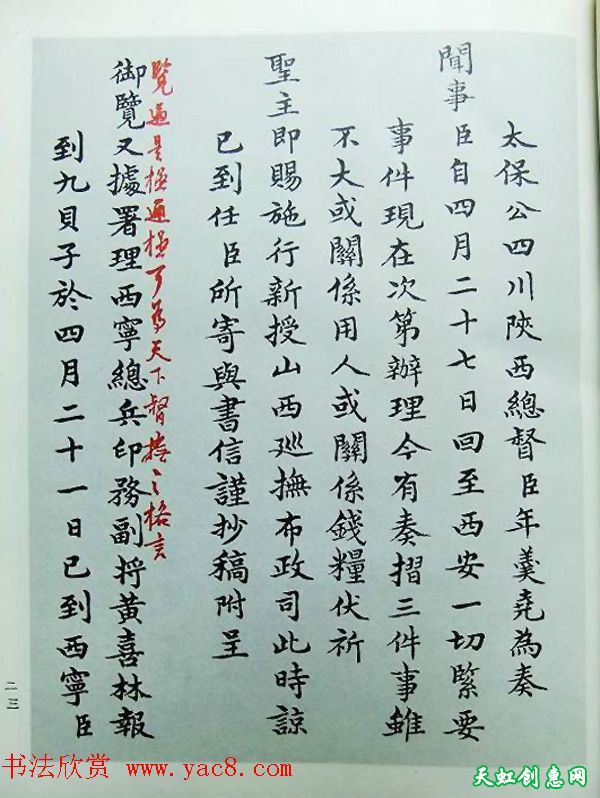 太保公四川陝西總督臣年羹堯為奏
聞事臣自四月二十七日回至西安一切緊要
事件現在次第辦理今有奏摺三件事雖
不大或關係用人或關係錢糧伏祈
聖主即賜施行新授山西廵撫布政司此時諒
已到任臣所寄與書信謹抄稿附呈
覽過是極通極了為天下督撫之格言
御覽又據署理西寧總兵印務副將黃喜林報
到九貝子於四月二十一日已到西寧臣
二三
书法欣赏 www.yac8.com
天虹创惠网